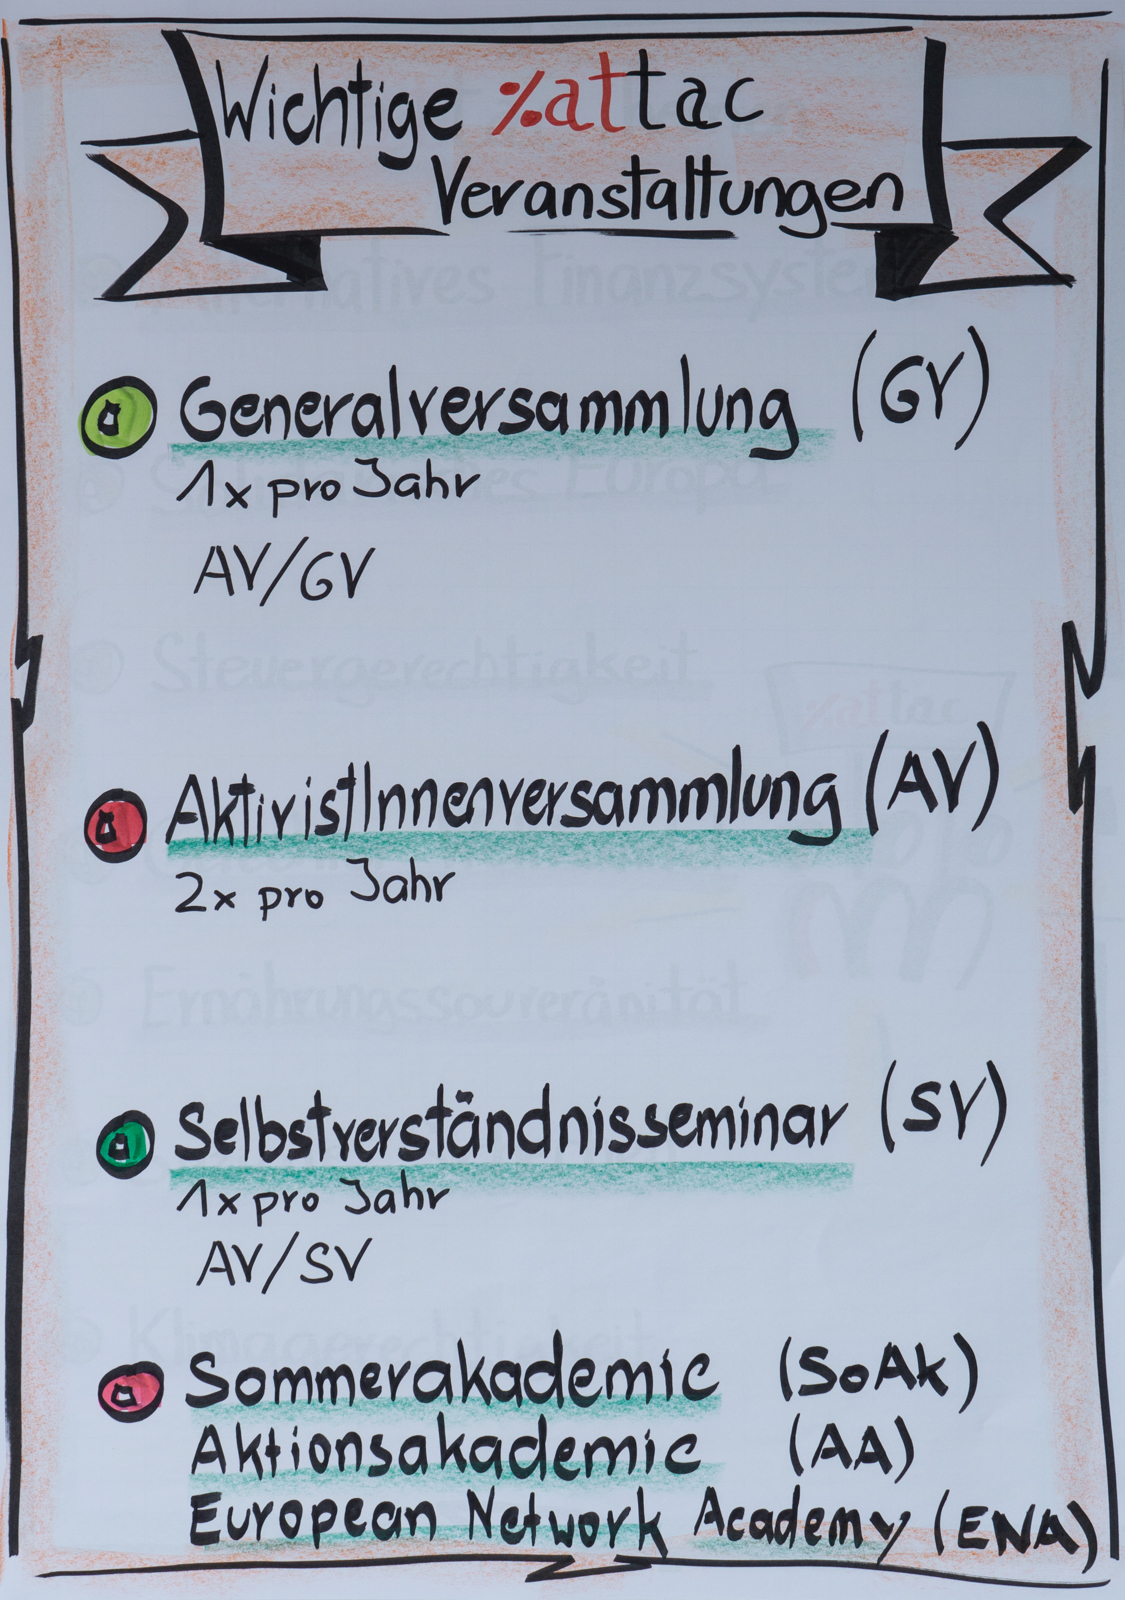 Wichtige %attac
Veranstaltungen
Generalversammlung (GV)
1x pro Jahr
AV/GV
AktivistInnenversammlung (AV)
2x pro Jahr
Selbstverständnisseminar (SV)
1x pro Jahr
AV/SV
Sommerakademie (SoAk)
Aktionsakademie (AA)
European Network Academy (ENA)